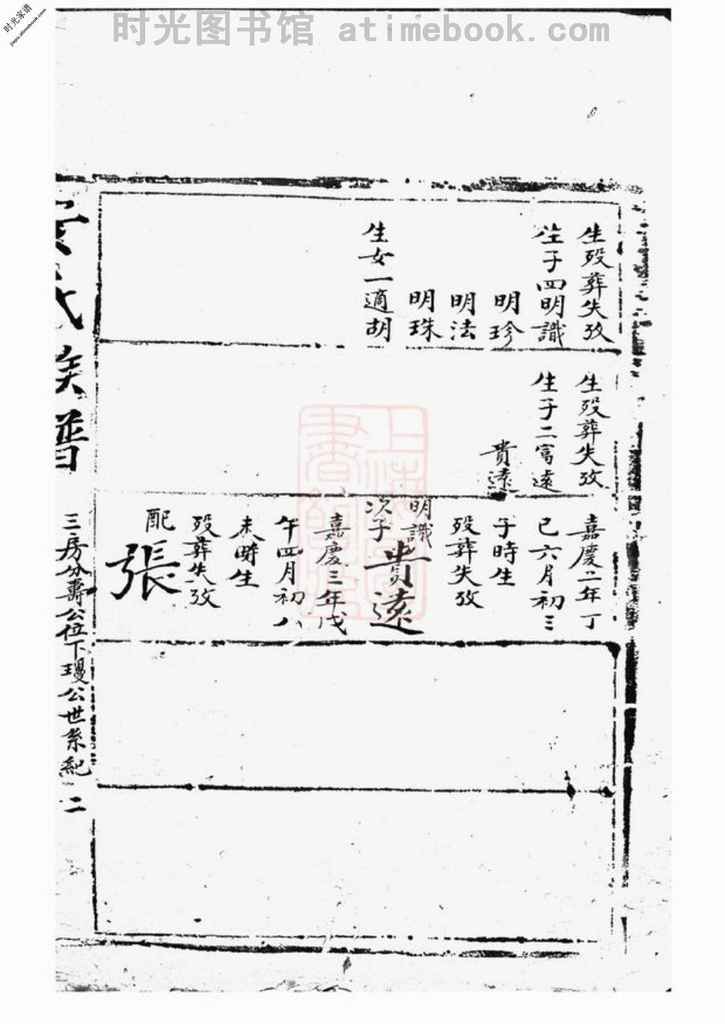 时光图书馆 atimebook.com
时光家谱
生歿葬失攷
生子四明識
明珍
明法
明珠
生女一適胡
生歿葬失攷
生子二富遠
貴遠
嘉慶二年丁
巳六月初三
子時生
歿葬失攷
明識
次子
貴遠
嘉慶三年戊
午四月初八
未時生
歿葬失攷
配
張
氏族譜
三房分壽公位下璦公世系紀
二